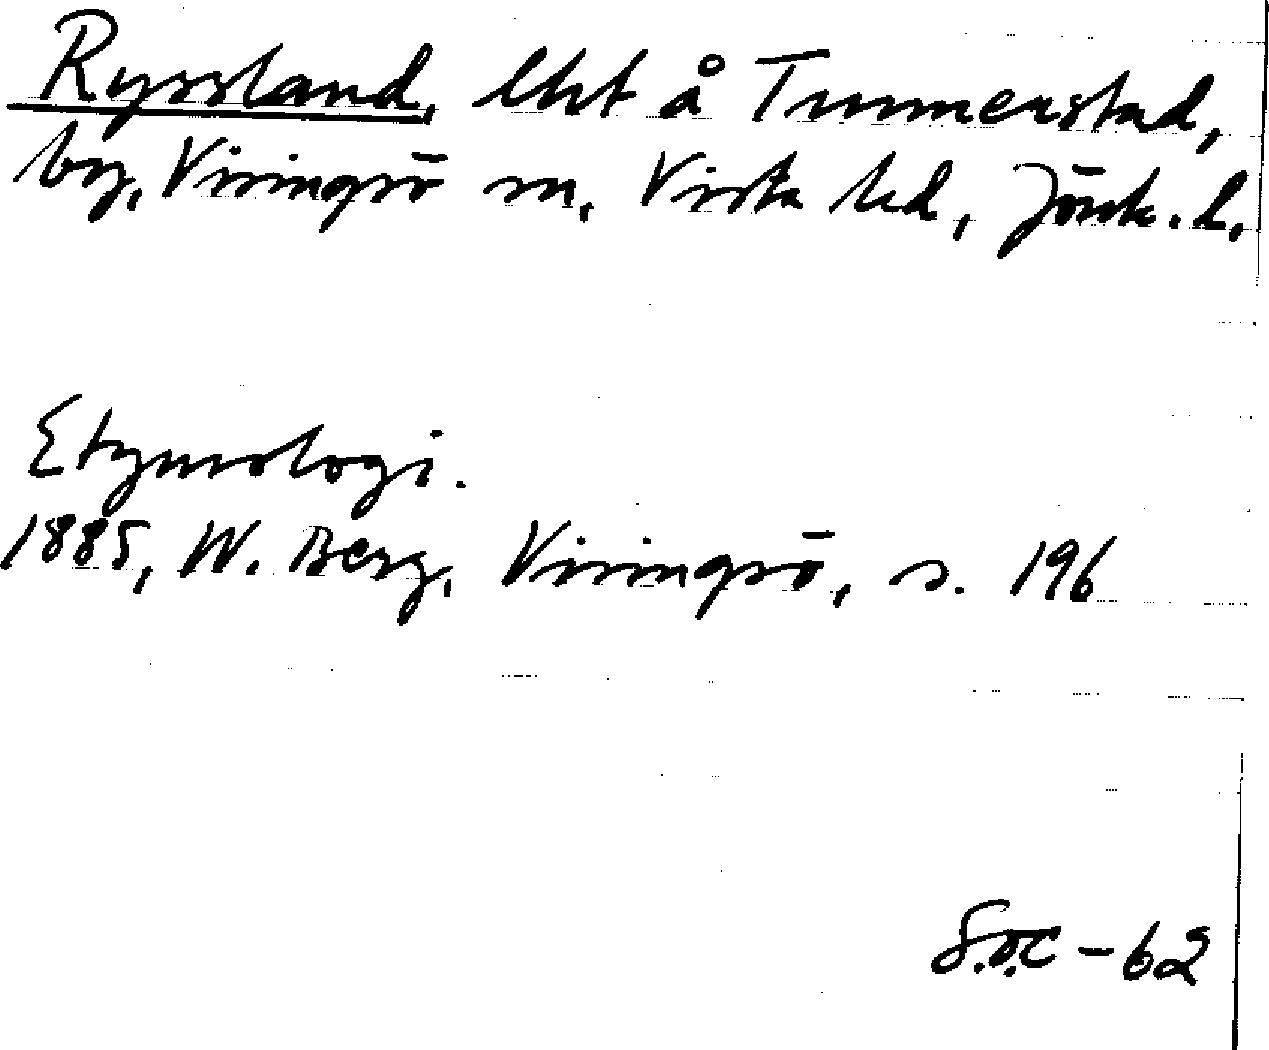 Ryssland, lht å Tunnerstad,
by, Visingsö sn, Vista hd, Jönk. l.
Etymologi.
1885, W. Berg, Visingsö, s. 196
-62